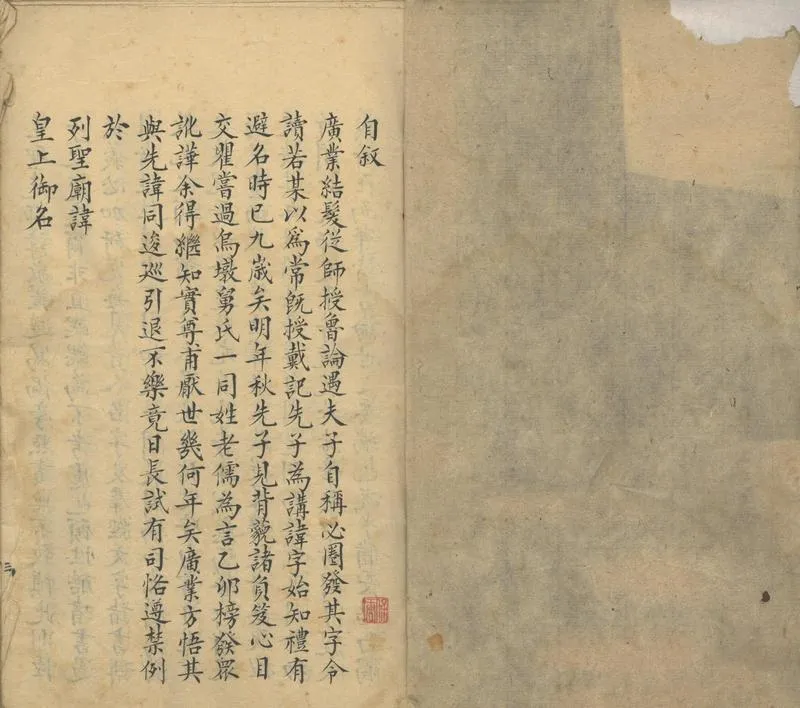 自叙
廣業結髮從師授魯論遇夫子自稱必圏發其字令
讀若某以爲常旣授戴記先子為講諱字始知禮有
避名時已九歲矣明年秋先子見背藐諸負笈心目
交瞿嘗過烏墩舅氏一同姓老儒為言乙卯榜發眾
訛譁余得繼知實尊甫厭世幾何年矣廣業方悟其
與先諱同逡巡引退不樂竟日長試有司恪遵禁例
於
列聖廟諱
皇上御名